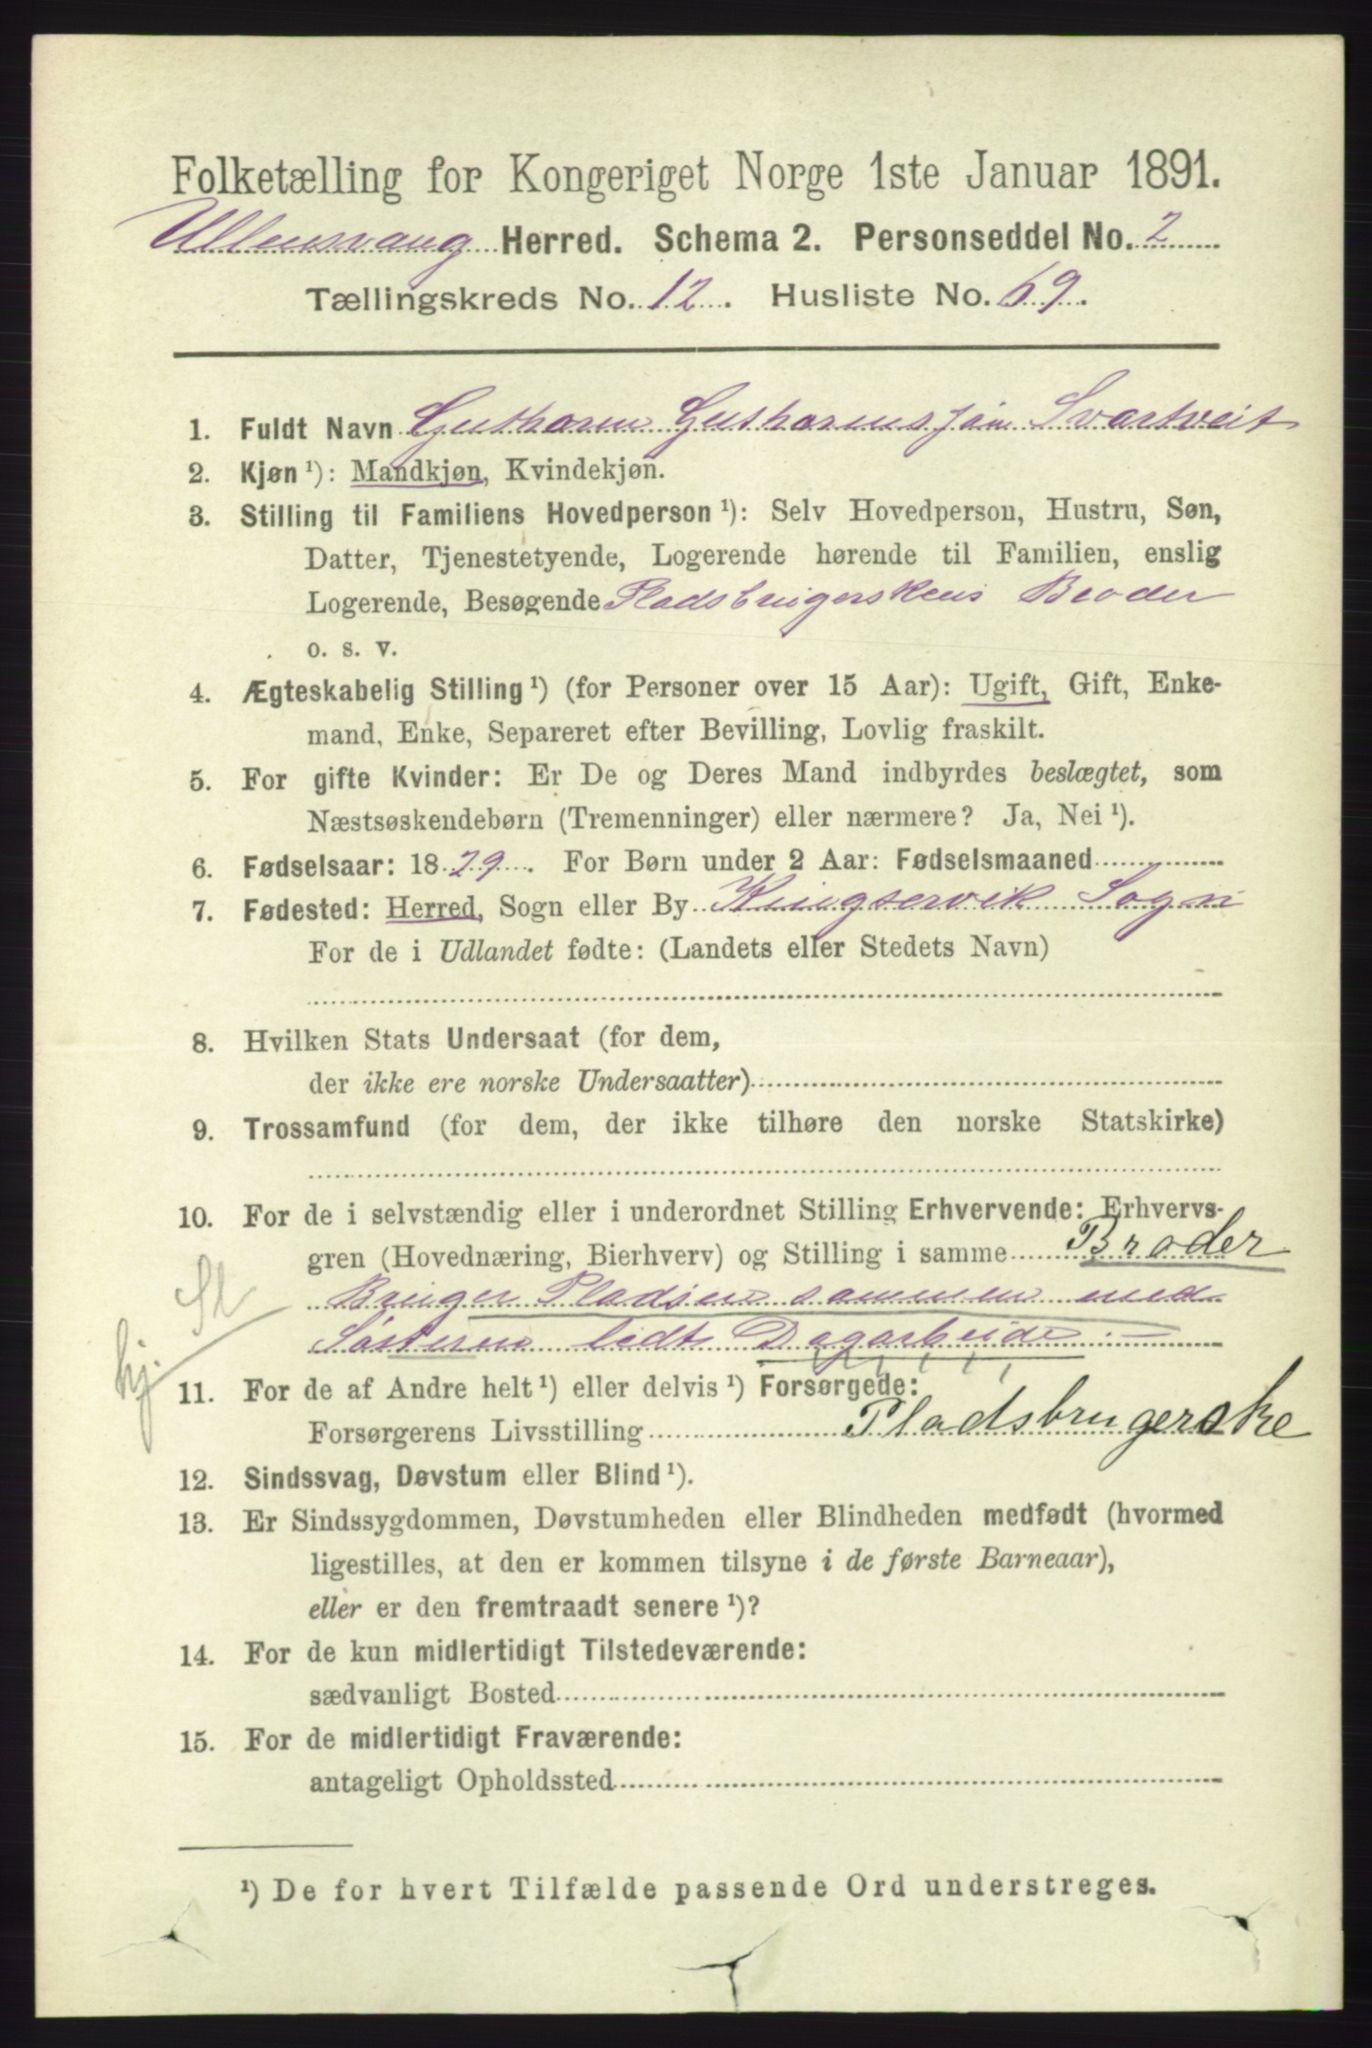 Folketælling for Kongeriget Norge 1ste Januar 1891.
Ullensvang Herred. Schema 2. Personseddel No. 2
Tællingskreds No. 12. Husliste No. 69.
1. Fuldt Navn Guthorm Guthormsjøn Svartveit
2. Kjøn ¹): Mandkjøn, Kvindekjøn.
3. Stilling til Familiens Hovedperson ¹): Selv Hovedperson, Hustru, Søn,
Datter, Tjenestetyende, Logerende hørende til Familien, enslig
Logerende, Besøgende Pladsbrugerskens Broder
o. s. v.
4. Ægteskabelig Stilling ¹) (for Personer over 15 Aar): Ugift, Gift, Enke-
mand, Enke, Separeret efter Bevilling, Lovlig fraskilt.
5. For gifte Kvinder: Er De og Deres Mand indbyrdes beslægtet, som
Næstsøskendebørn (Tremenninger) eller nærmere? Ja, Nei ¹).
6. Fødselsaar: 1829. For Børn under 2 Aar: Fødselsmaaned
7. Fødested: Herred, Sogn eller By Kingservik Sogn
For de i Udlandet fødte: (Landets eller Stedets Navn)
8. Hvilken Stats Undersaat (for dem,
der ikke ere norske Undersaatter)
9. Trossamfund (for dem, der ikke tilhøre den norske Statskirke)
10. For de i selvstændig eller i underordnet Stilling Erhvervende: Erhvervs-
gren (Hovednæring, Bierhverv) og Stilling i samme Broder
Bruger Pladsen sammen med
Søsteren lidt Dagarbeide.
hj.
11. For de af Andre helt ¹) eller delvis ¹) Forsørgede:
Forsørgerens Livsstilling Pladsbrugerske
12. Sindssvag, Døvstum eller Blind ¹).
13. Er Sindssygdommen, Døvstumheden eller Blindheden medfødt (hvormed
ligestilles, at den er kommen tilsyne i de første Barneaar),
eller er den fremtraadt senere ¹)?
14. For de kun midlertidigt Tilstedeværende:
sædvanligt Bosted
15. For de midlertidigt Fraværende:
antageligt Opholdssted
¹) De for hvert Tilfælde passende Ord understreges.